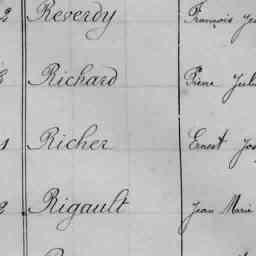 2 Reverdy François
Richard Pierre
1 Richer Ernest
2 Rigault Jean Marie